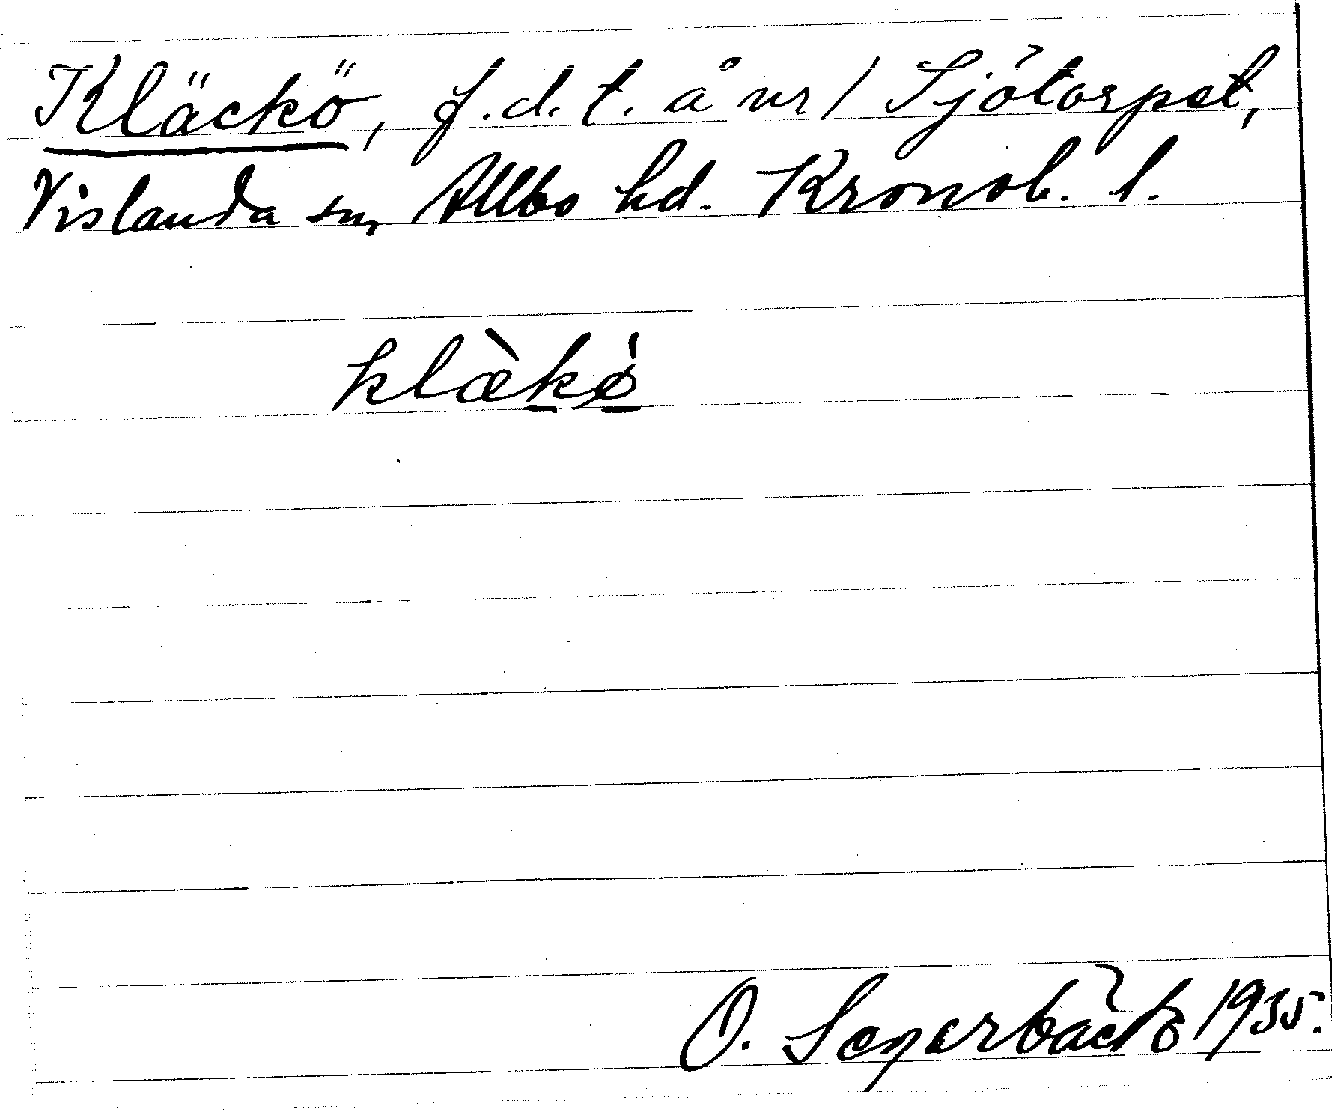 Kläckö, f.d.t. å nr 1 Sjötorpet,
Vislanda sn, Allbo hd. Kronob. l.
klæ̀kǿ
O. Segerbäck 1935.